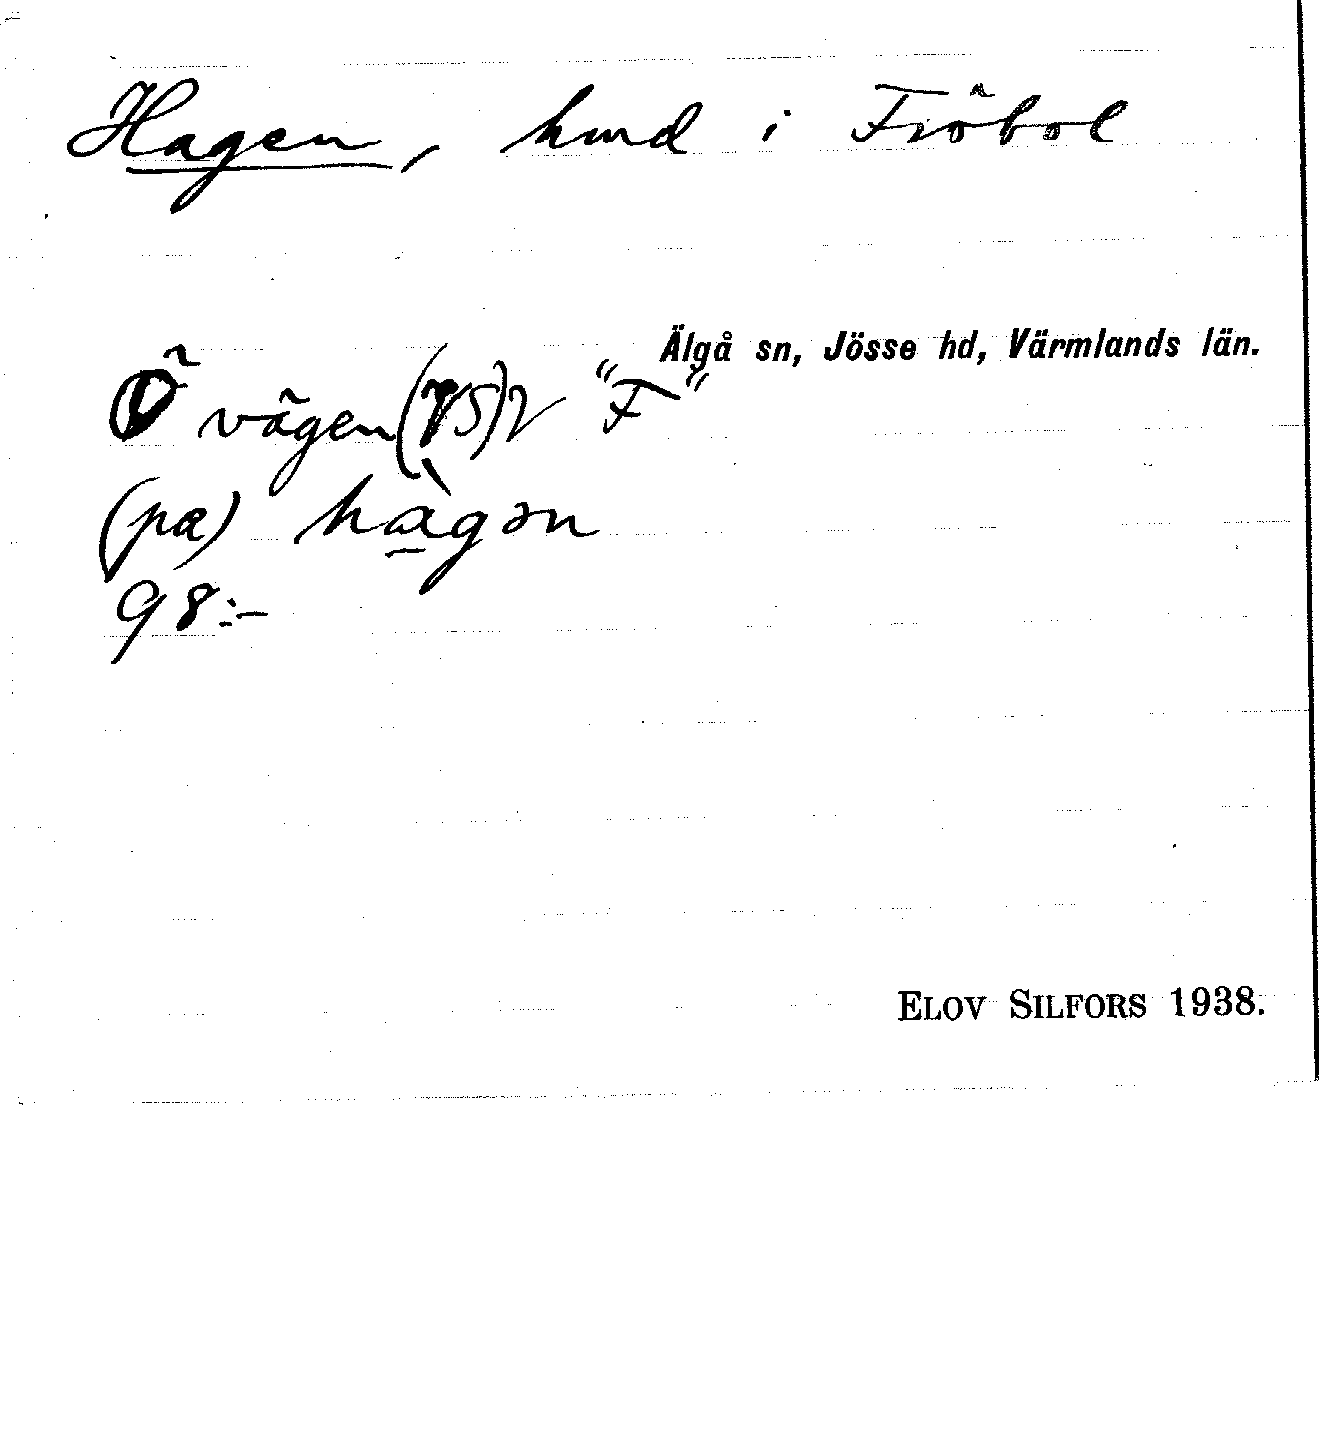 Hagen, hmd i Fröbol
Älgå sn, Jösse hd, Värmlands län.
Ö vägen (VS)V "F"
(pα) hὰgən
98:-
ELOV SILFORS 1938.